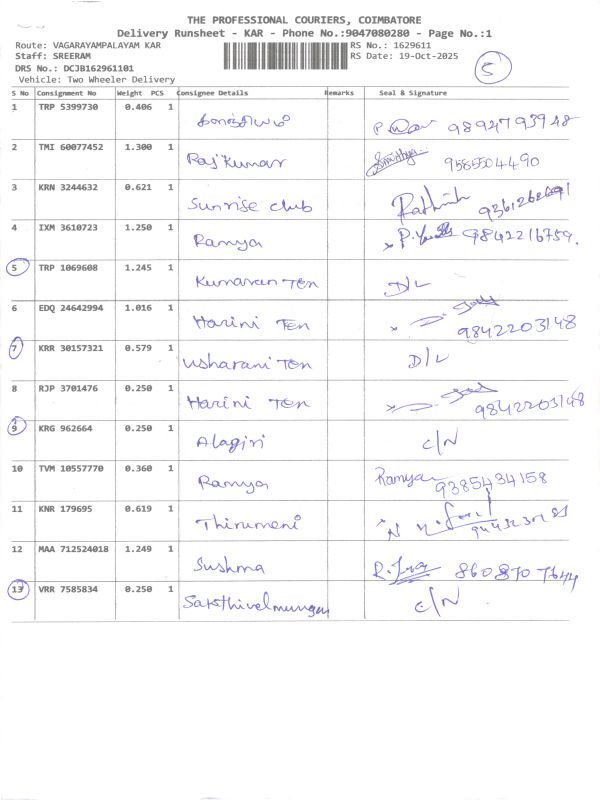 THE PROFESSIONAL COURIERS, COIMBATORE
Delivery Runsheet - KAR - Phone No.:9047080280 - Page No.:1
Route: VAGARAYAMPALAYAM KAR RS No.: 1629611
Staff: SREERAM RS Date: 19-Oct-2025
DRS No.: DCJB162961101 5
Vehicle: Two Wheeler Delivery
S No Consignment No Weight PCS Consignee Details Remarks Seal & Signature
1 TRP 5399730 0.406 1 9894793948
2 TMI 60077452 1.300 1 Rajkumar 9585504490
3 KRN 3244632 0.621 1 Sunrise club
4 IXM 3610723 1.250 1 Ramya 9842216759.
5 TRP 1069608 1.245 1 Kumaran TEN D/L
6 EDQ 24642994 1.016 1 Harini TEN 9842203148
7 KRR 30157321 0.579 1 Usharani TEN D/L
8 RJP 3701476 0.250 1 Harini TEN 9842203148
9 KRG 962664 0.250 1 Alagiri C/N
10 TVM 10557770 0.360 1 Ramya Ramya 9385434158
11 KNR 179695 0.619 1 Thirumeni
12 MAA 712524018 1.249 1 Sushma 8608707644
13 VRR 7585834 0.250 1 C/N